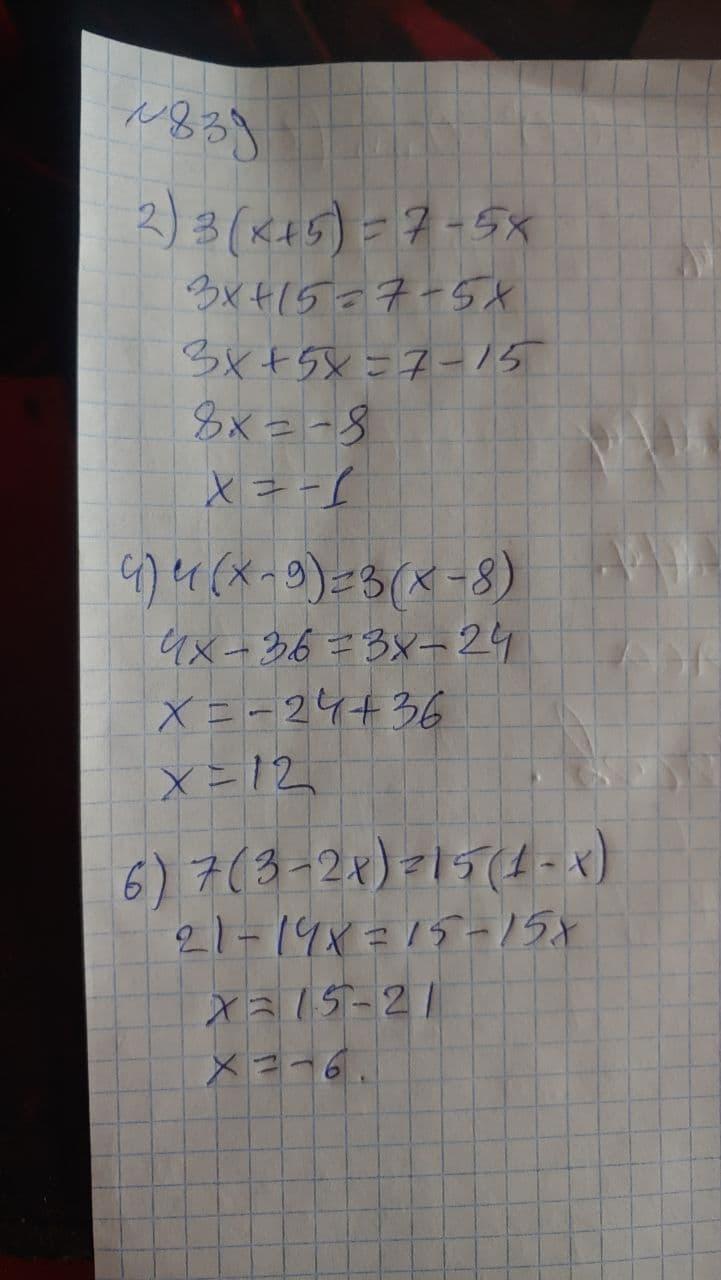 №839
2) 3(x+5)=7-5x
3x+15=7-5x
3x+5x=7-15
8x=-8
x=-1
4) 4(x-9)=3(x-8)
4x-36=3x-24
x=-24+36
x=12
6) 7(3-2x)=15(1-x)
21-14x=15-15x
x=15-21
x=-6.